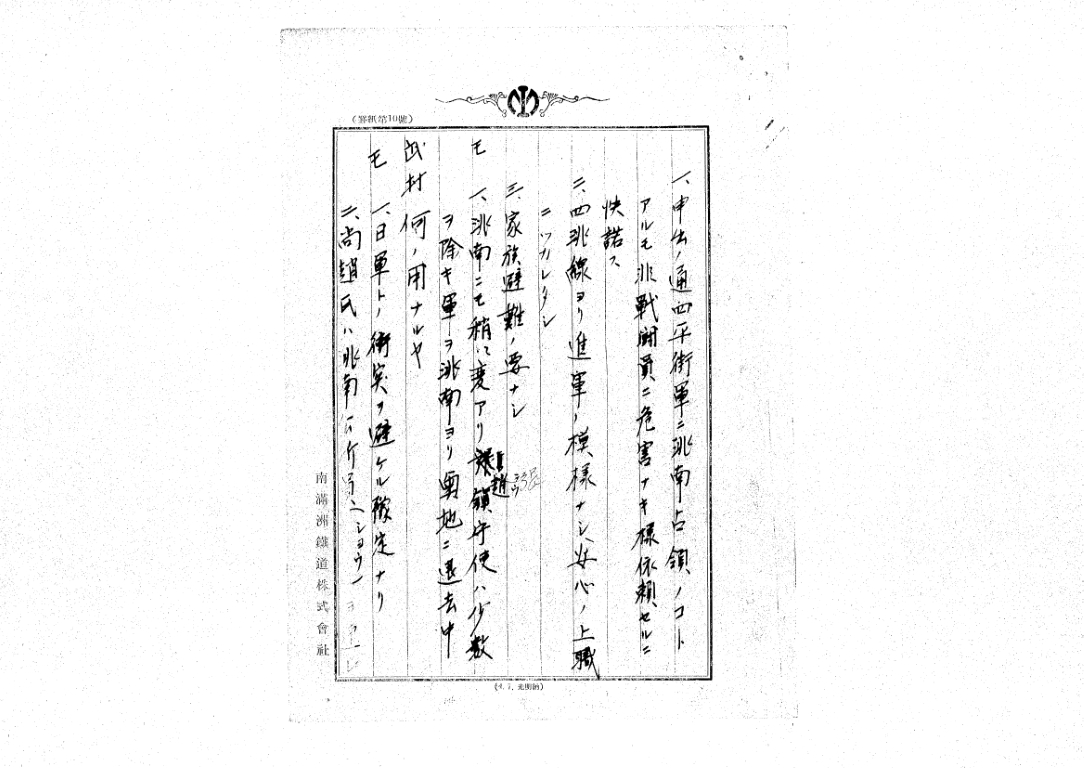 (罫紙第10號)
一、申出ノ通四平街軍ニ洮南占領ノコト
アルモ非戰鬪員ニ危害ナキ樣依賴セルニ
快諾ス
二、四洮線ヨリ進軍ノ模樣ナシ安心ノ上職
ニツカレタシ
三、家族避難ノ要ナシ
モ 一、洮南ニモ稍々変アリ 鎮守使ハ少数
趙
ヲ除キ軍ヲ洮南ヨリ奥地ニ退去中
武村 何ノ用ナルヤ
モ 一、日軍トノ衝突ヲ避ケル稼定ナリ
二、尚趙氏ハ洮南
南滿洲鐵道株式會社